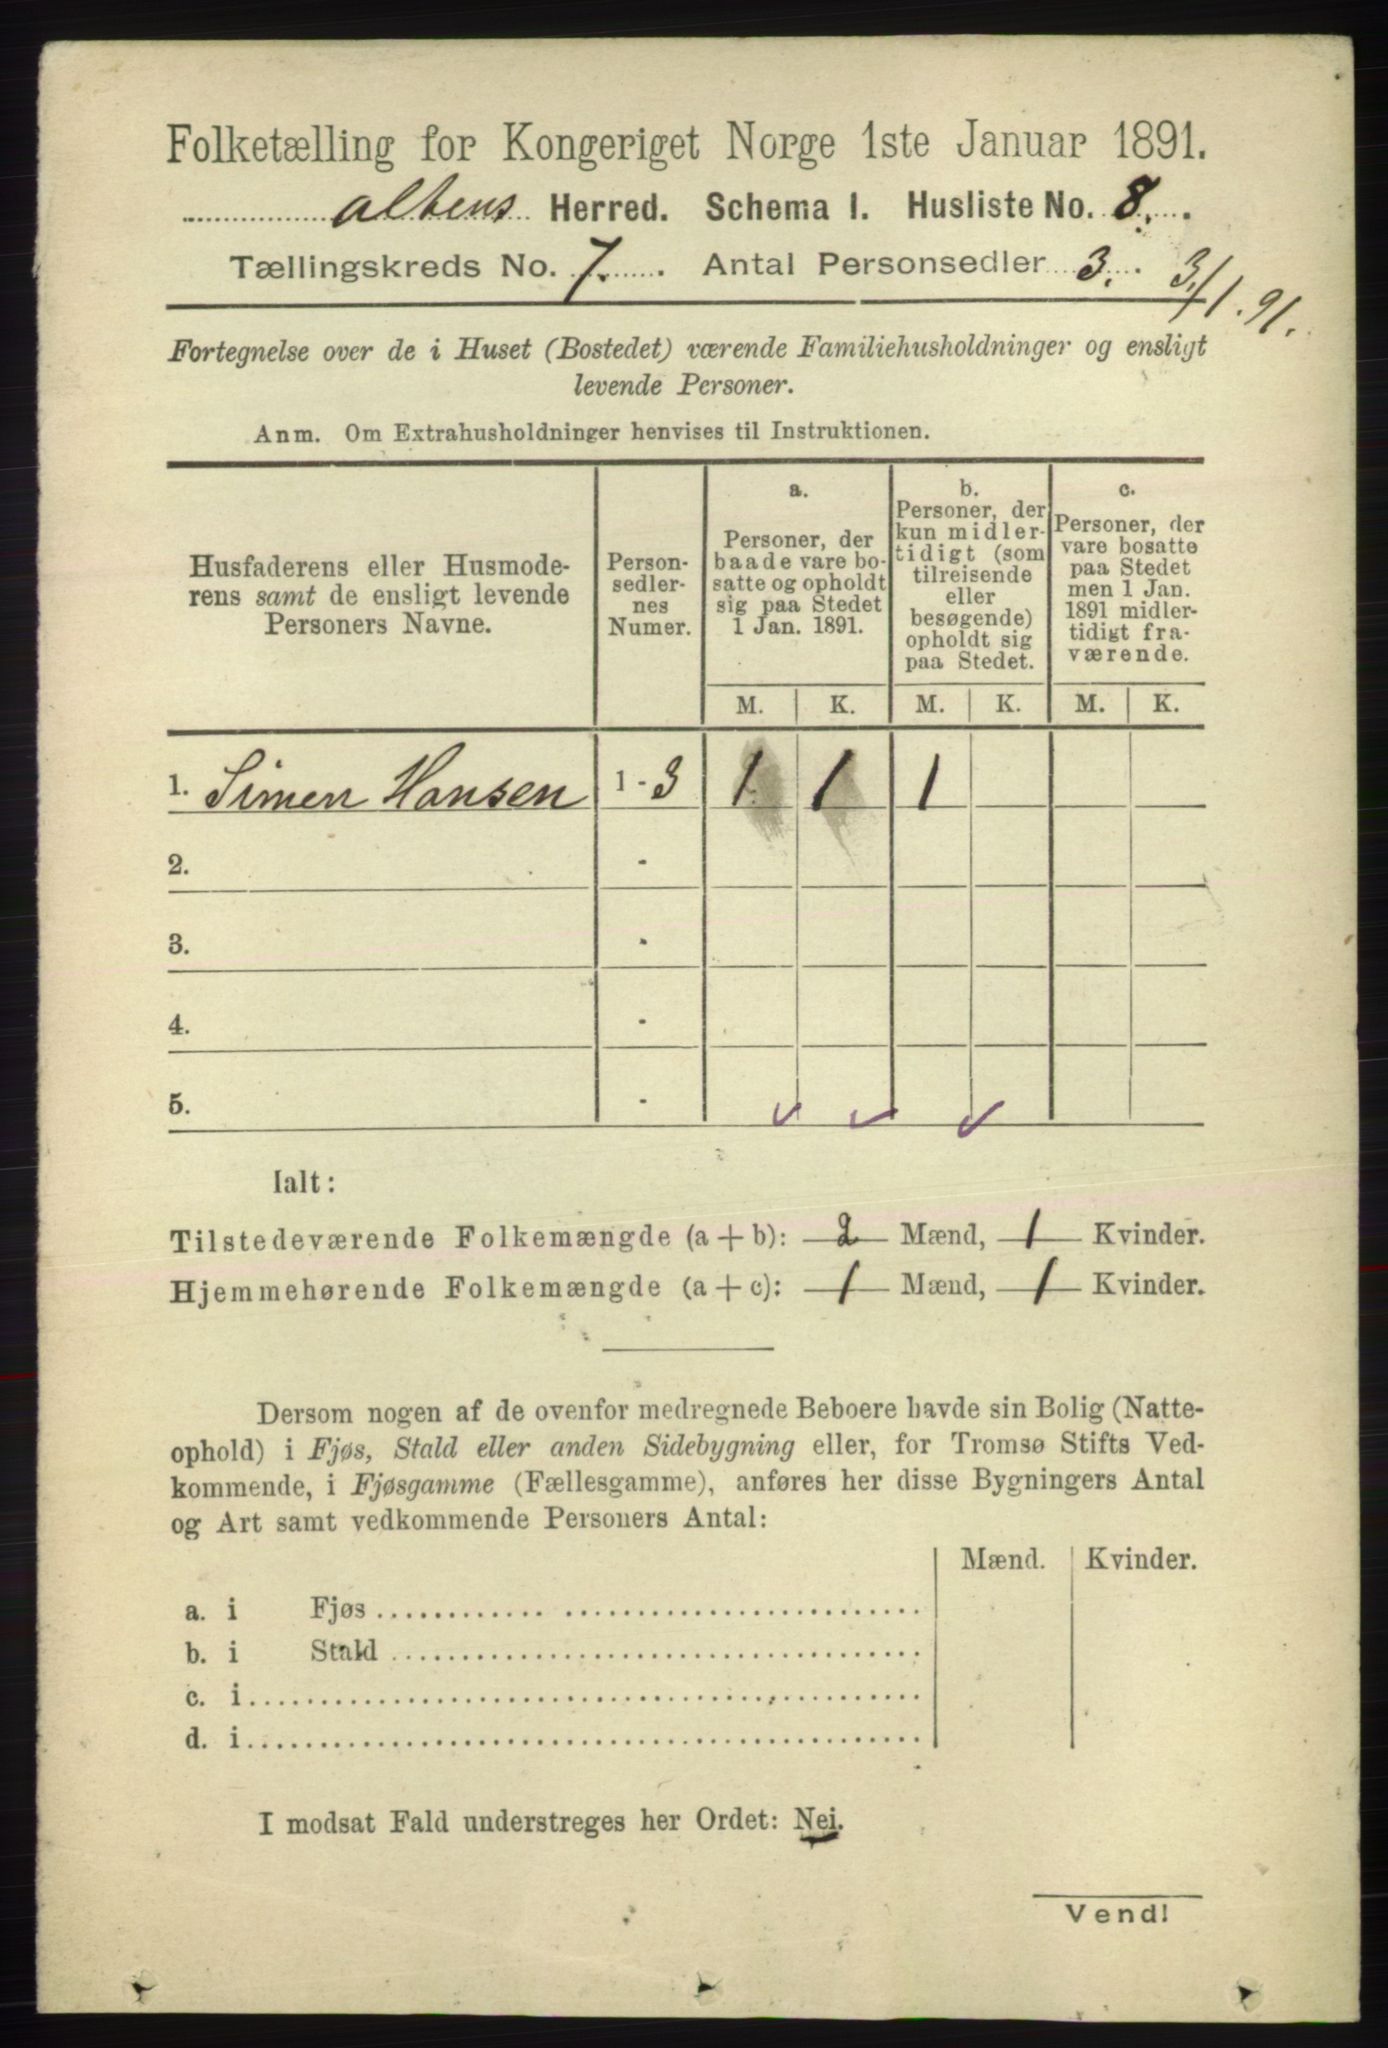 Folketælling for Kongeriget Norge 1ste Januar 1891.
Altens Herred. Schema I. Husliste No. 8.
Tællingskreds No. 7. Antal Personsedler 3. 3/1.91.
Fortegnelse over de i Huset (Bostedet) værende Familiehusholdninger og ensligt
levende Personer.
Anm. Om Extrahusholdninger henvises til Instruktionen.
Husfaderens eller Husmode-
rens samt de ensligt levende
Personers Navne.
Person-
sedler-
nes
Numer.
a.
Personer, der
baade vare bo-
satte og opholdt
sig paa Stedet
1 Jan. 1891.
b.
Personer, der
kun midler-
tidigt (som
tilreisende
eller
besøgende)
opholdt sig
paa Stedet.
c.
Personer, der
vare bosatte
paa Stedet
men 1 Jan.
1891 midler-
tidigt fra-
værende.
M. K. M. K. M. K.
1. Simen Hansen 1 - 3 1 1 1
2. -
3. -
4. -
5. -
Ialt:
Tilstedeværende Folkemængde (a + b): 2 Mænd, 1 Kvinder.
Hjemmehørende Folkemængde (a + c): 1 Mænd, 1 Kvinder.
Dersom nogen af de ovenfor medregnede Beboere havde sin Bolig (Natte-
ophold) i Fjøs, Stald eller anden Sidebygning eller, for Tromsø Stifts Ved-
kommende, i Fjøsgamme (Fællesgamme), anføres her disse Bygningers Antal
og Art samt vedkommende Personers Antal:
Mænd. Kvinder.
a. i Fjøs
b. i Stald
c. i
d. i
I modsat Fald understreges her Ordet: Nei.
Vend!